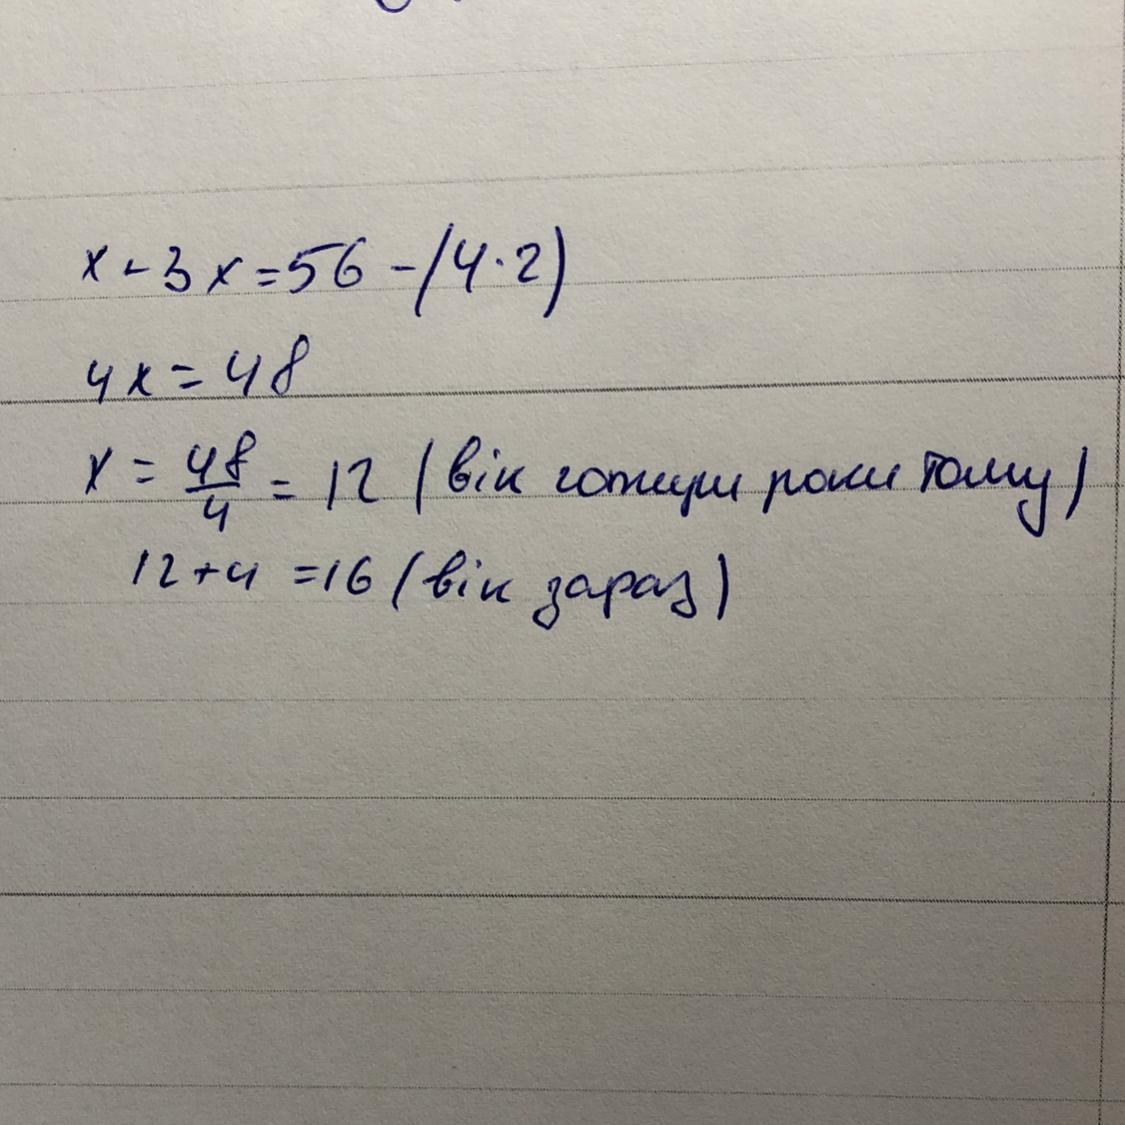 x + 3x = 56 - (4 · 2)
4x = 48
x = 48/4 = 12 (вік чотири роки тому)
12 + 4 = 16 (вік зараз)